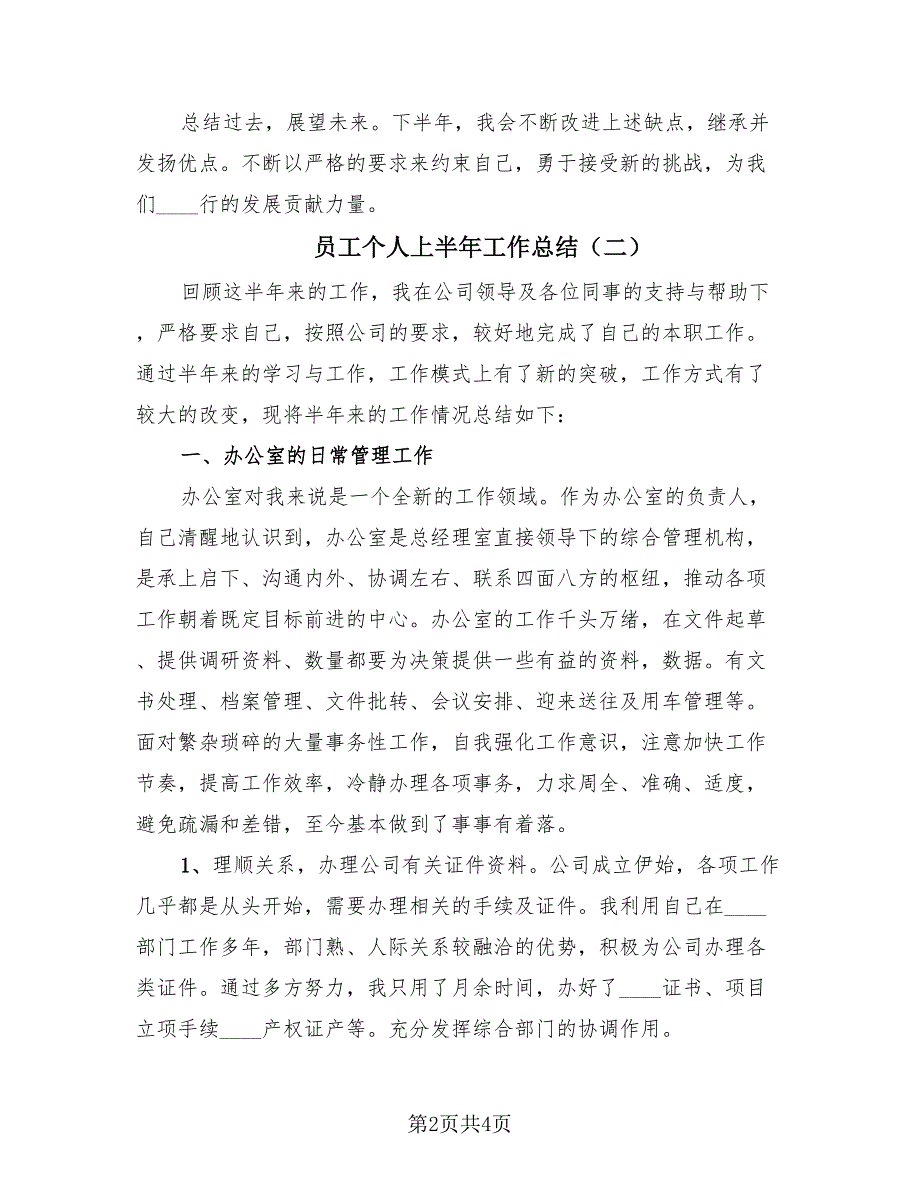 总结过去，展望未来。下半年，我会不断改进上述缺点，继承并
发扬优点。不断以严格的要求来约束自己，勇于接受新的挑战，为我
们____行的发展贡献力量。
员工个人上半年工作总结（二）
回顾这半年来的工作，我在公司领导及各位同事的支持与帮助下
，严格要求自己，按照公司的要求，较好地完成了自己的本职工作。
通过半年来的学习与工作，工作模式上有了新的突破，工作方式有了
较大的改变，现将半年来的工作情况总结如下：
一、办公室的日常管理工作
办公室对我来说是一个全新的工作领域。作为办公室的负责人，
自己清醒地认识到，办公室是总经理室直接领导下的综合管理机构，
是承上启下、沟通内外、协调左右、联系四面八方的枢纽，推动各项
工作朝着既定目标前进的中心。办公室的工作千头万绪，在文件起草
、提供调研资料、数量都要为决策提供一些有益的资料，数据。有文
书处理、档案管理、文件批转、会议安排、迎来送往及用车管理等。
面对繁杂琐碎的大量事务性工作，自我强化工作意识，注意加快工作
节奏，提高工作效率，冷静办理各项事务，力求周全、准确、适度，
避免疏漏和差错，至今基本做到了事事有着落。
1、理顺关系，办理公司有关证件资料。公司成立伊始，各项工作
几乎都是从头开始，需要办理相关的手续及证件。我利用自己在____
部门工作多年，部门熟、人际关系较融洽的优势，积极为公司办理各
类证件。通过多方努力，我只用了月余时间，办好了____证书、项目
立项手续____产权证产等。充分发挥综合部门的协调作用。
第2页共4页